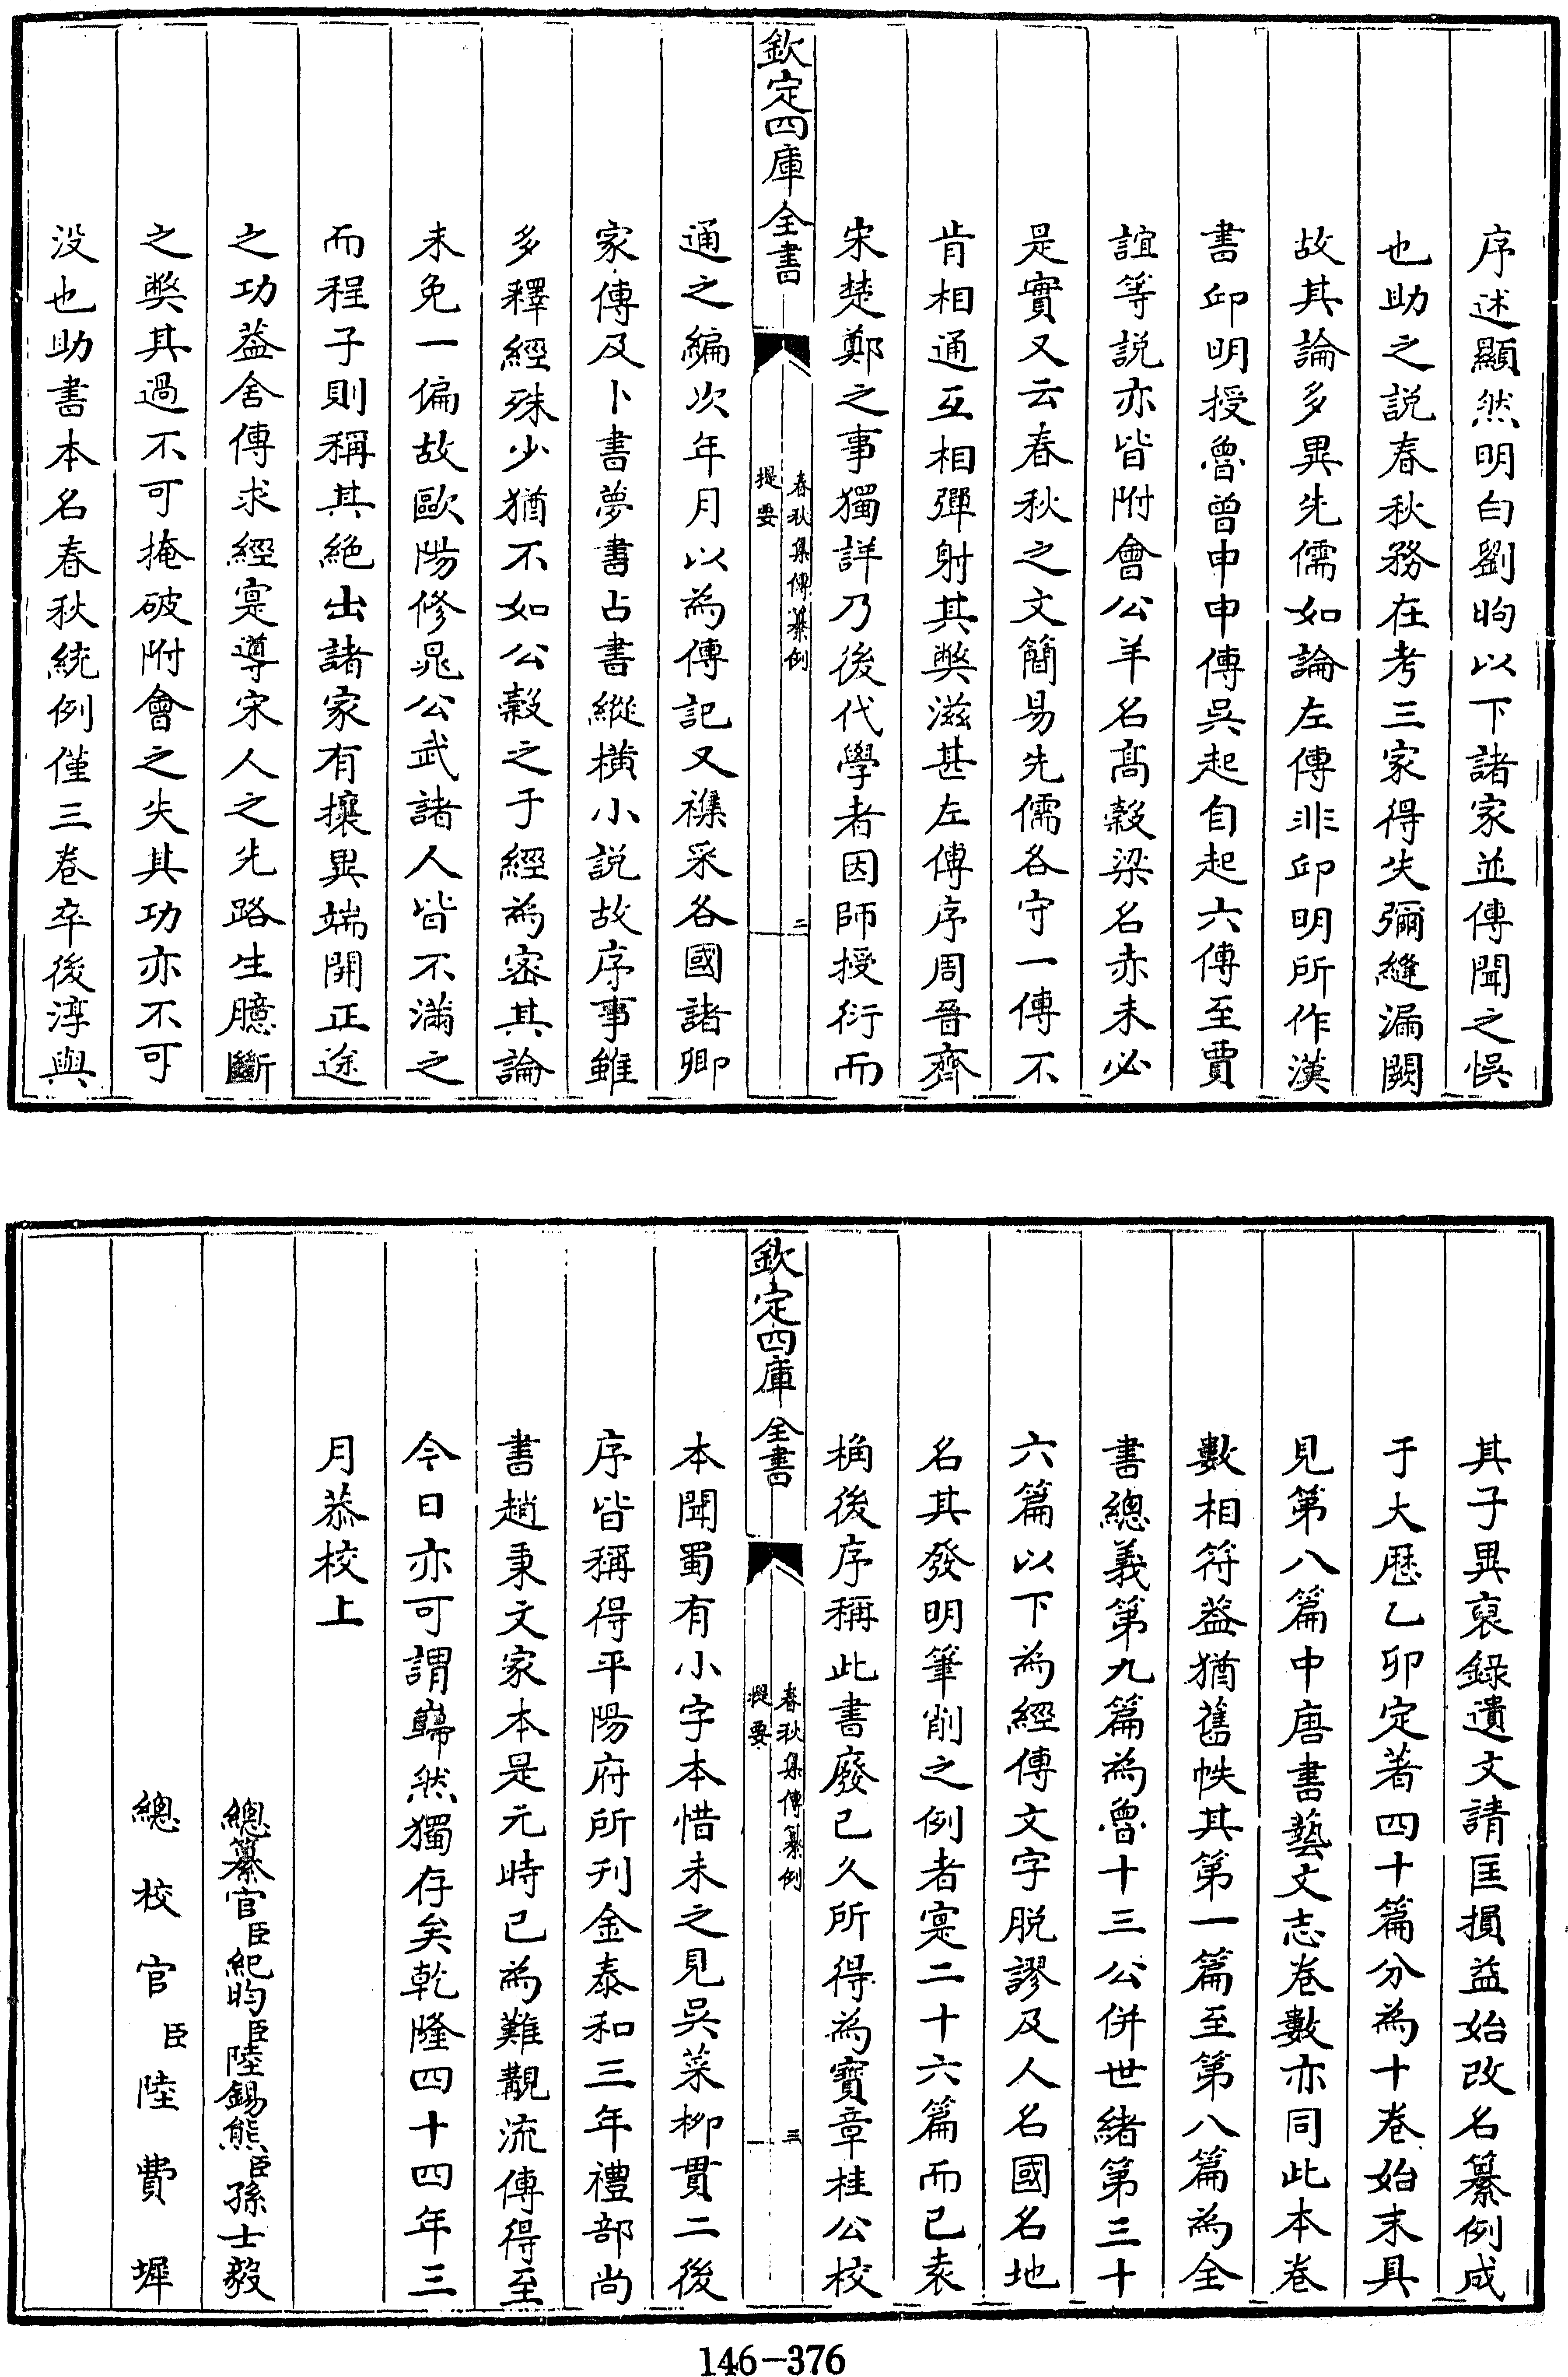 序述顯然明白劉昫以下諸家並傳聞之悞
也助之説春秋務在考三家得失彌縫漏闕
故其論多異先儒如論左傳非邱明所作漢
書邱明授魯曾申申傳吳起自起六傳至賈
誼等説亦皆附會公羊名髙榖梁名赤未必
是實又云春秋之文簡易先儒各守一傳不
肯相通互相彈射其獘滋甚左傳序周晉齊
宋楚鄭之事獨詳乃後代學者因師授衍而
欽定四庫全書
春秋集傳纂例
提要
二
通之編次年月以為傳記又襍采各國諸卿
家傳及卜書夢書占書縱横小説故序事雖
多釋經殊少猶不如公榖之于經為密其論
未免一偏故歐陽修晁公武諸人皆不滿之
而程子則稱其絶出諸家有攘異端開正途
之功葢舍傳求經寔導宋人之先路生臆斷
之獘其過不可掩破附會之失其功亦不可
没也助書本名春秋統例僅三卷卒後淳與
其子異裒錄遺文請匡損益始改名纂例成
于大厯乙卯定著四十篇分為十卷始末具
見第八篇中唐書藝文志卷數亦同此本卷
數相符葢猶舊帙其第一篇至第八篇為全
書總義第九篇為魯十三公併世緒第三十
六篇以下為經傳文字脱謬及人名國名地
名其發明筆削之例者寔二十六篇而已袁
桷後序稱此書廢已久所得為寶章桂公校
欽定四庫全書
春秋集傳纂例
提要
三
本聞蜀有小字本惜未之見吳萊柳貫二後
序皆稱得平陽府所刋金泰和三年禮部尚
書趙秉文家本是元時已為難觀流傳得至
今日亦可謂巋然獨存矣乾隆四十四年三
月恭校上
總纂官臣紀昀臣陸錫熊臣孫士毅
總校官臣陸費墀
146-376